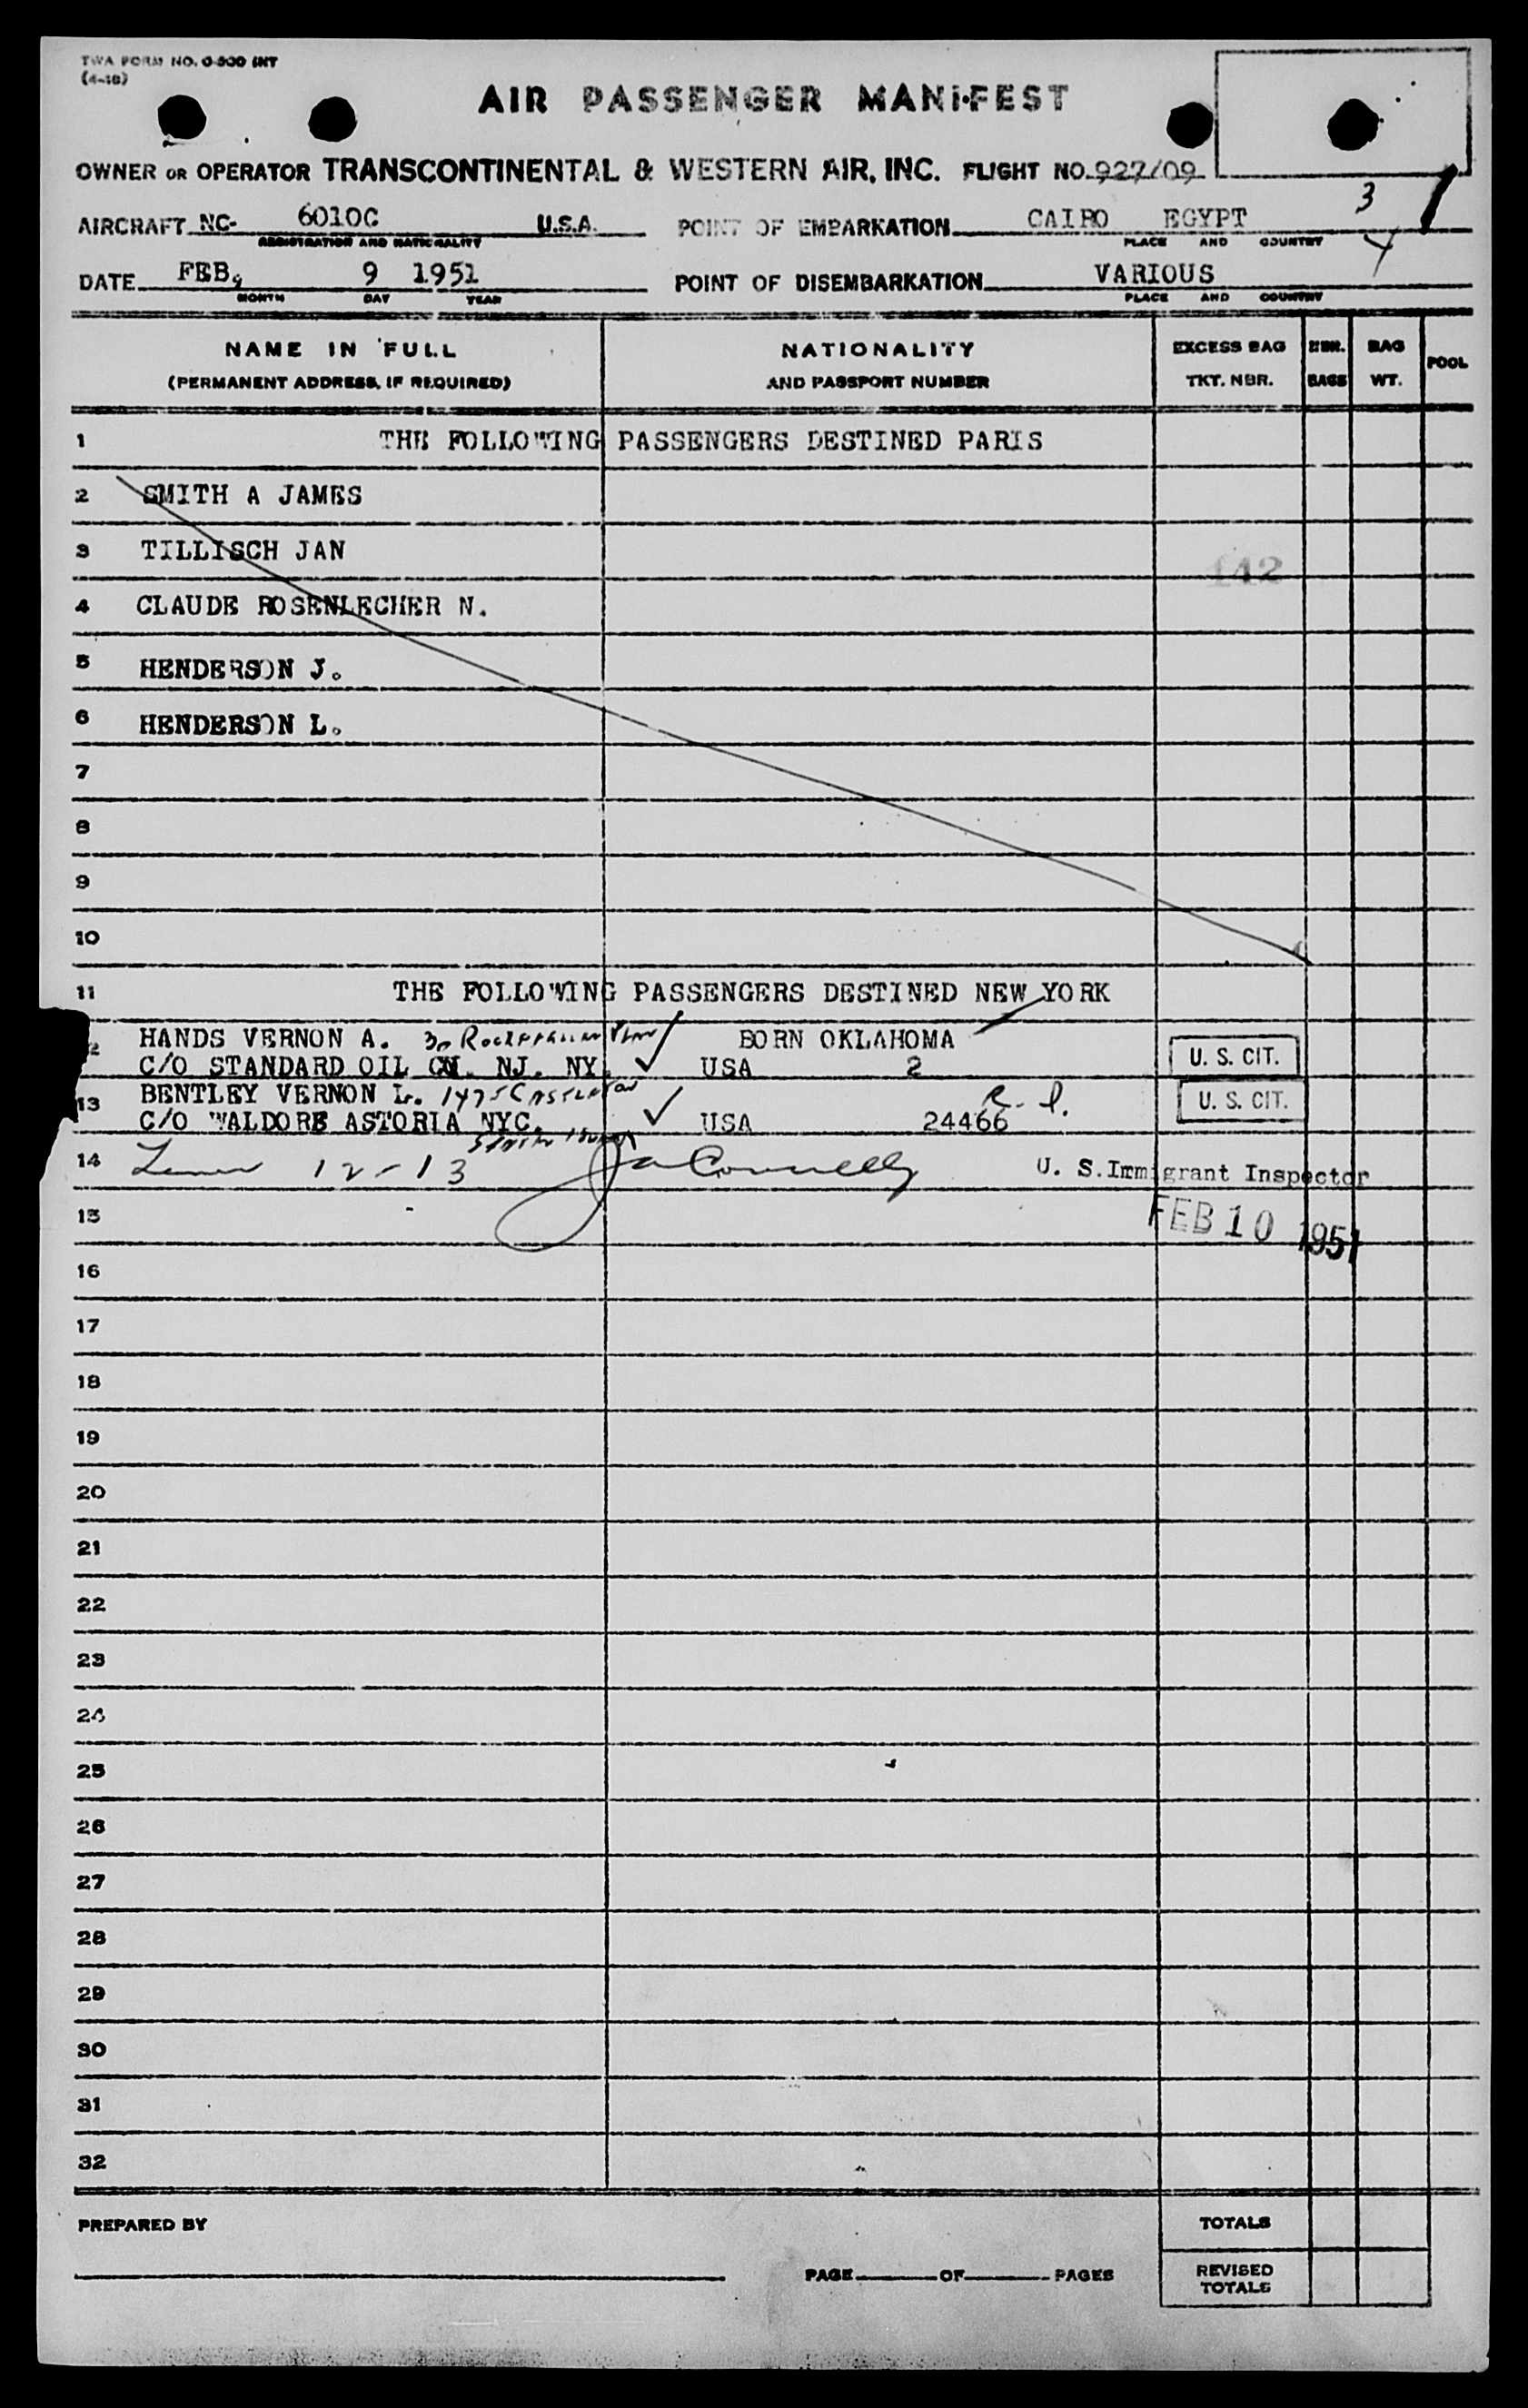 TWA FORM NO. O-500 INT
(4-48)
AIR PASSENGER MANIFEST
OWNER OR OPERATOR TRANSCONTINENTAL & WESTERN AIR, INC. FLIGHT NO. 927/09
3
AIRCRAFT NC- 6010C U.S.A. POINT OF EMBARKATION CAIRO EGYPT
REGISTRATION AND NATIONALITY PLACE AND COUNTRY
4
DATE FEB, 9 1951 POINT OF DISEMBARKATION VARIOUS
MONTH DAY YEAR PLACE AND COUNTRY
NAME IN FULL NATIONALITY EXCESS BAG NBR. BAG POOL
(PERMANENT ADDRESS, IF REQUIRED) AND PASSPORT NUMBER TKT. NBR. BAGS WT.
1 THE FOLLOWING PASSENGERS DESTINED PARIS
2 SMITH A JAMES
3 TILLISCH JAN 142
4 CLAUDE ROSENLECHER N.
5 HENDERSON J.
6 HENDERSON L.
7
8
9
10
11 THE FOLLOWING PASSENGERS DESTINED NEW YORK
HANDS VERNON A. 30 BORN OKLAHOMA
2 C/O STANDARD OIL NJ. NY. USA 2 U. S. CIT.
BENTLEY VERNON L. 1475 R. I.
13 C/O WALDORF ASTORIA NYC. USA 24466 U. S. CIT.
14 12-13 U. S. Immigrant Inspector
15 FEB 10 1951
16
17
18
19
20
21
22
23
24
25
26
27
28
29
30
31
32
PREPARED BY TOTALS
PAGE OF PAGES REVISED
TOTALS